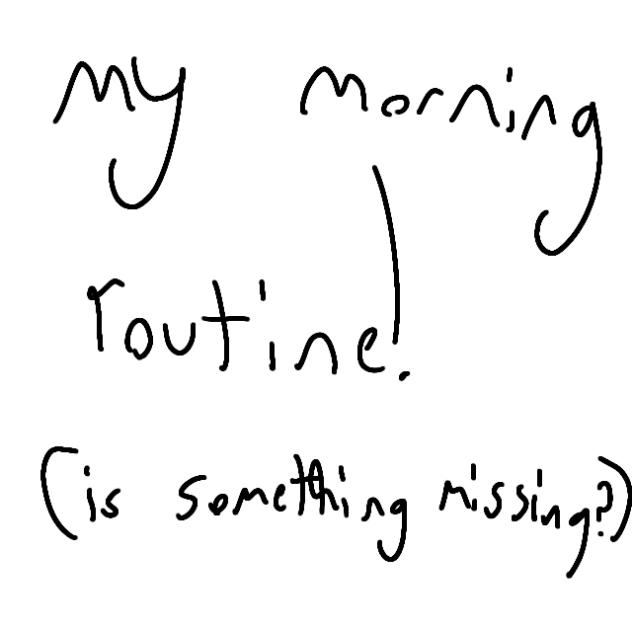 my morning
routine!
(is something missing?)